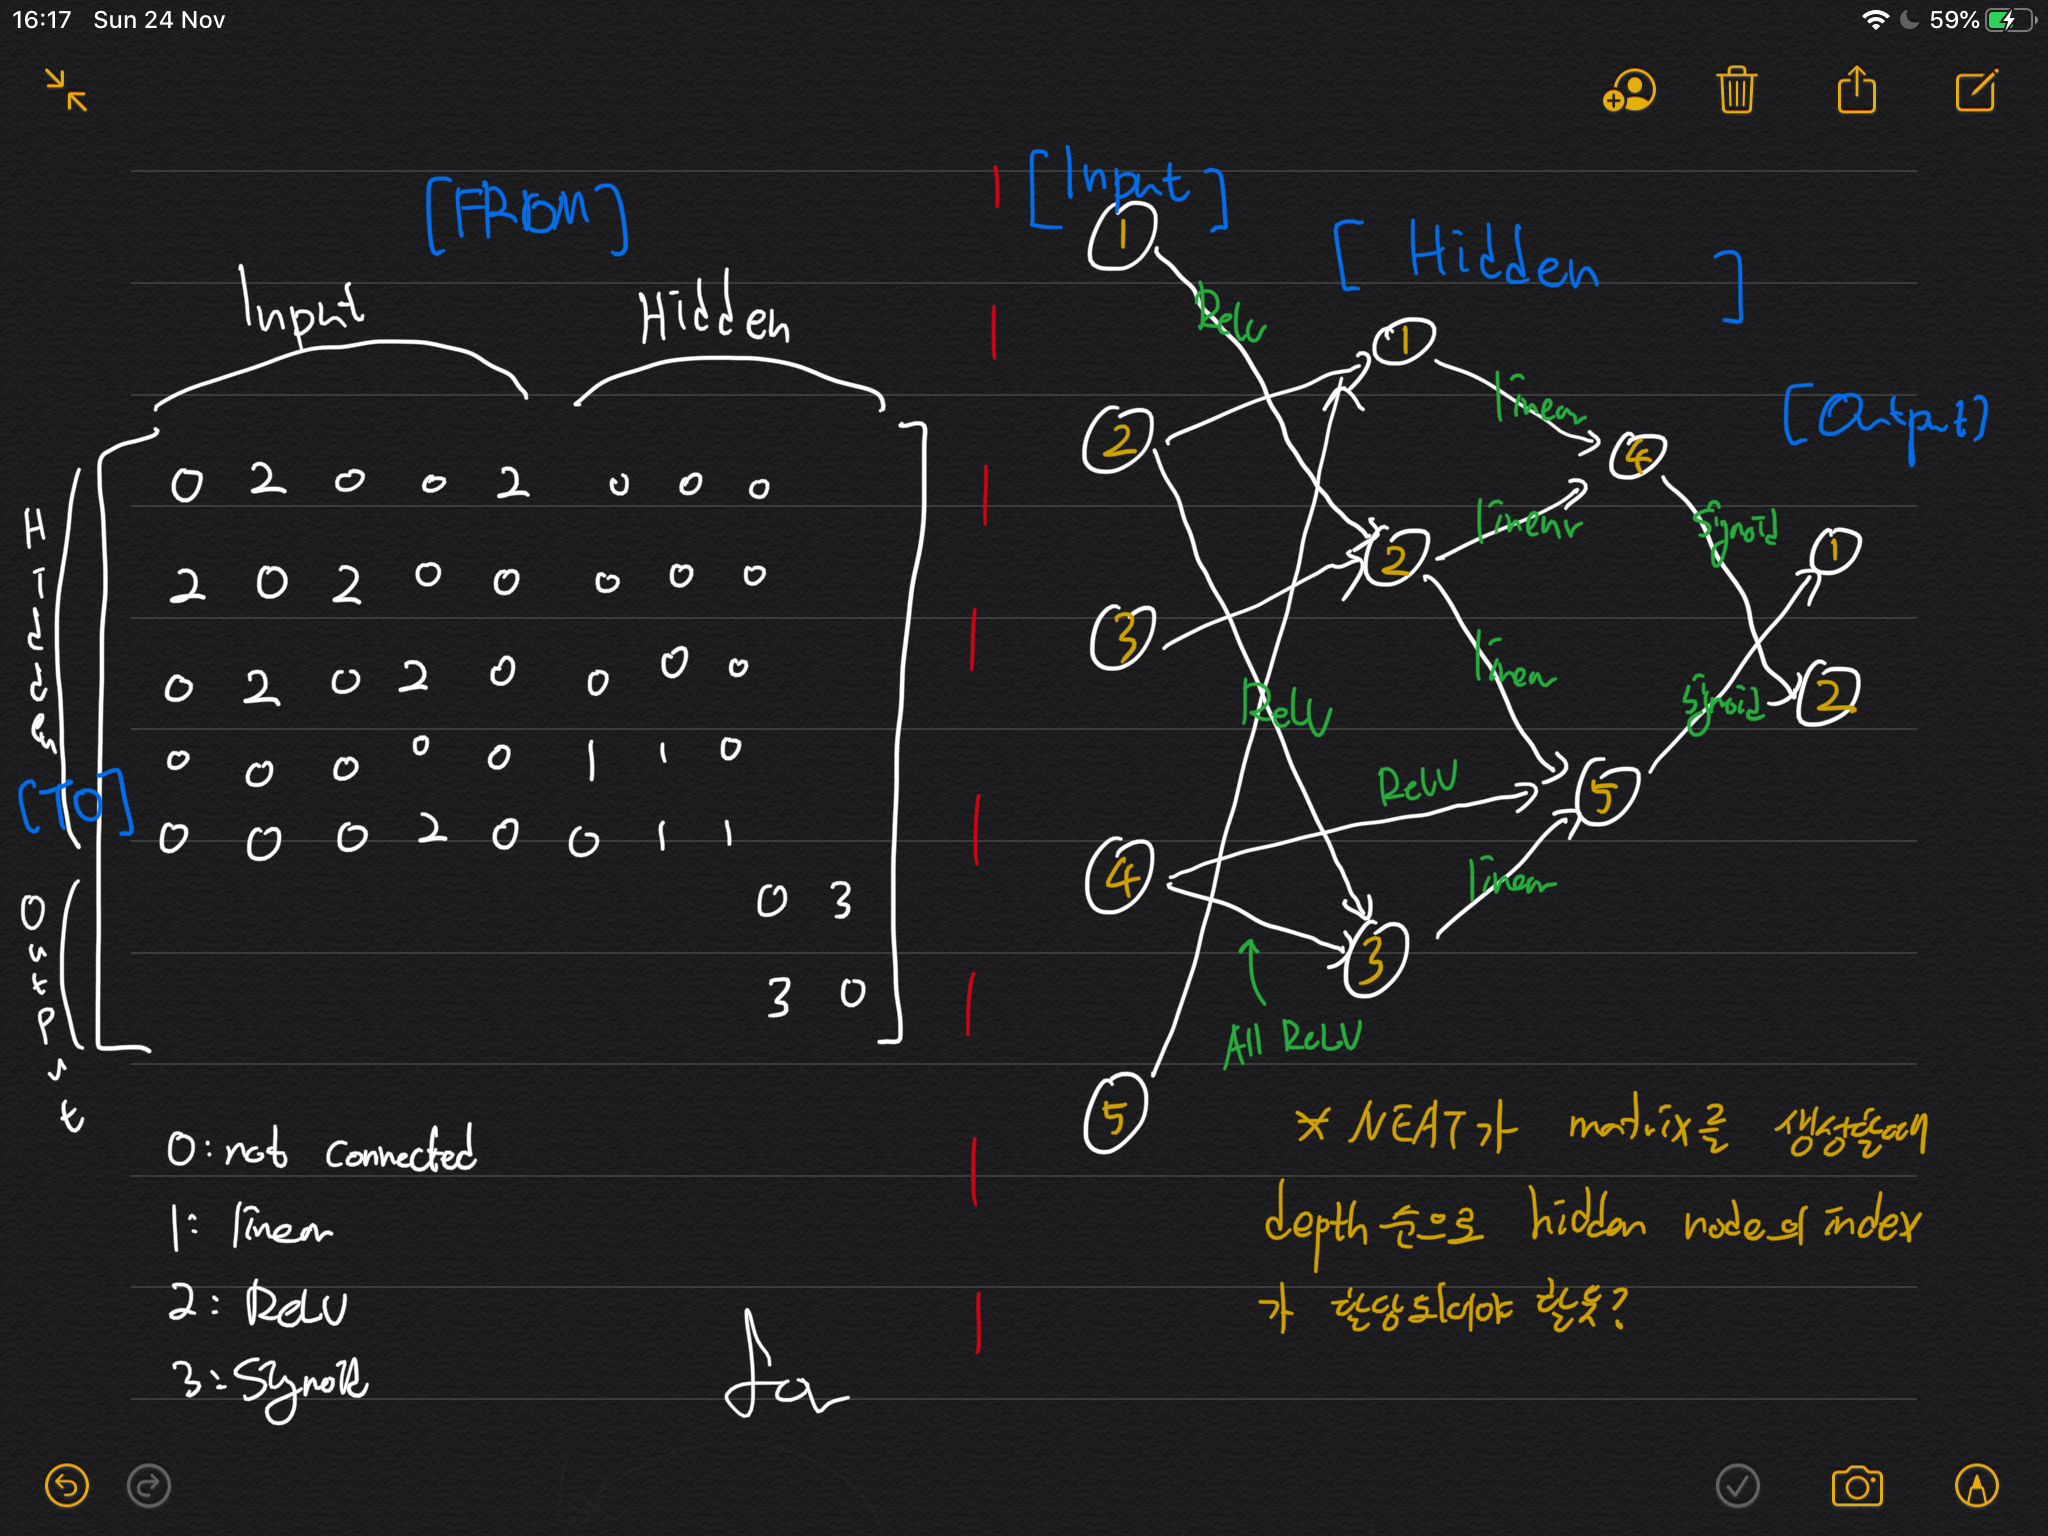 16:17 Sun 24 Nov
59%
[FROM]
Input Hidden
Hidden
[TO]
Output
0 2 0 0 2 0 0 0
2 0 2 0 0 0 0 0
0 2 0 2 0 0 0 0
0 0 0 0 0 1 1 0
0 0 0 2 0 0 1 1
0 3
3 0
0: not connected
1: linear
2: ReLU
3: Sigmoid
[Input]
[Hidden]
[Output]
1
2
3
4
5
1
2
3
4
5
1
2
Relu
linear
linear
Sigmoid
linear
ReLU
Sigmoid
ReLU
linear
All ReLU
* NEAT가 matrix를 생성할때
depth 순으로 hidden node의 index
가 할당되어야 할듯?